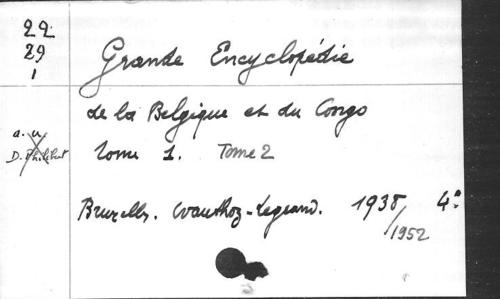 22
29
1
Grande Encyclopédie
de la Belgique et du Congo
a. u.
Tome 1. Tome 2
D. Philibert
Bruxelles. Wauthoz-Legrand. 1938 4°
/1952